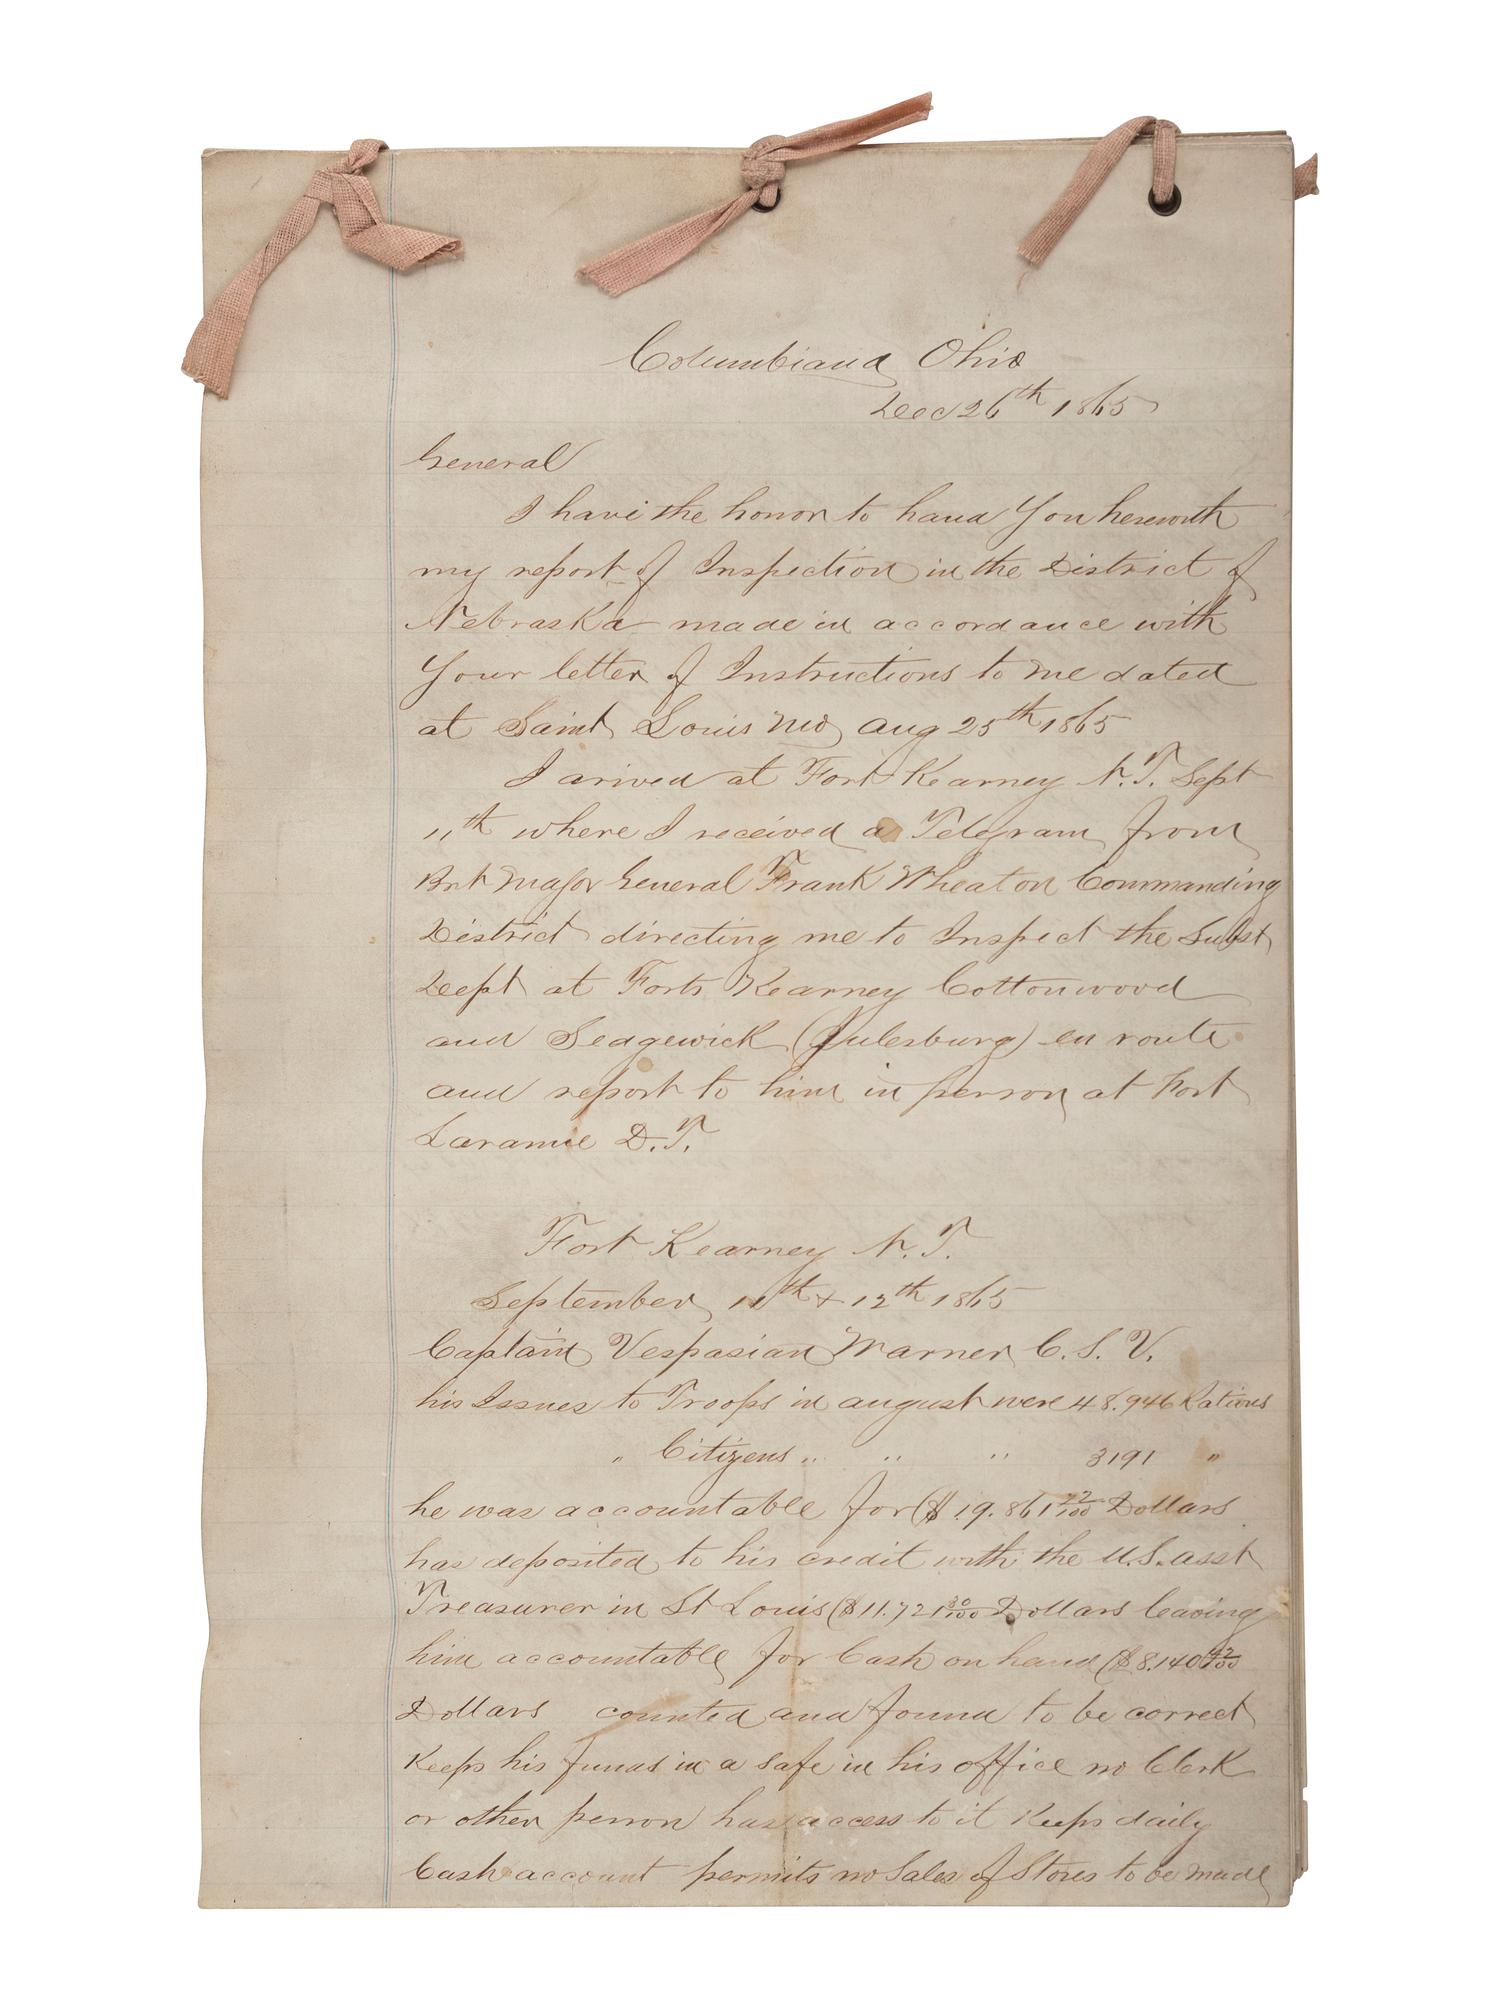 Columbiana Ohio
Dec 26th 1865
General
I have the honor to hand You herewith
my report of Inspection in the District of
Nebraska made in accordance with
Your letter of Instructions to me dated
at Saint Louis Mo Aug 25th 1865
I arived at Fort Kearney N.T. Sept
11th where I received a Telegram from
Bvt Major General Frank Wheaton Commanding
District directing me to Inspect the Subst
Dept at Forts Kearney Cottonwood
and Sedgewick (Julesburg) en route
and report to him in person at Fort
Laramie D.T.
Fort Kearney N.T.
September 11th & 12th 1865
Captain Vespasian Warner C.S.V.
his Issues to Troops in August were 48.946 Rations
" Citizens " " " 3191 "
he was accountable for ($19.861 72/100 Dollars
has deposited to his credit with the U.S. Asst
Treasurer in St Louis ($11.721 30/100 Dollars leaving
him accountable for Cash on hand ($8.140 42/100
Dollars counted and found to be correct
Keeps his funds in a safe in his office no Clerk
or other person has access to it Keeps daily
Cash account permits no Sales of Stores to be made